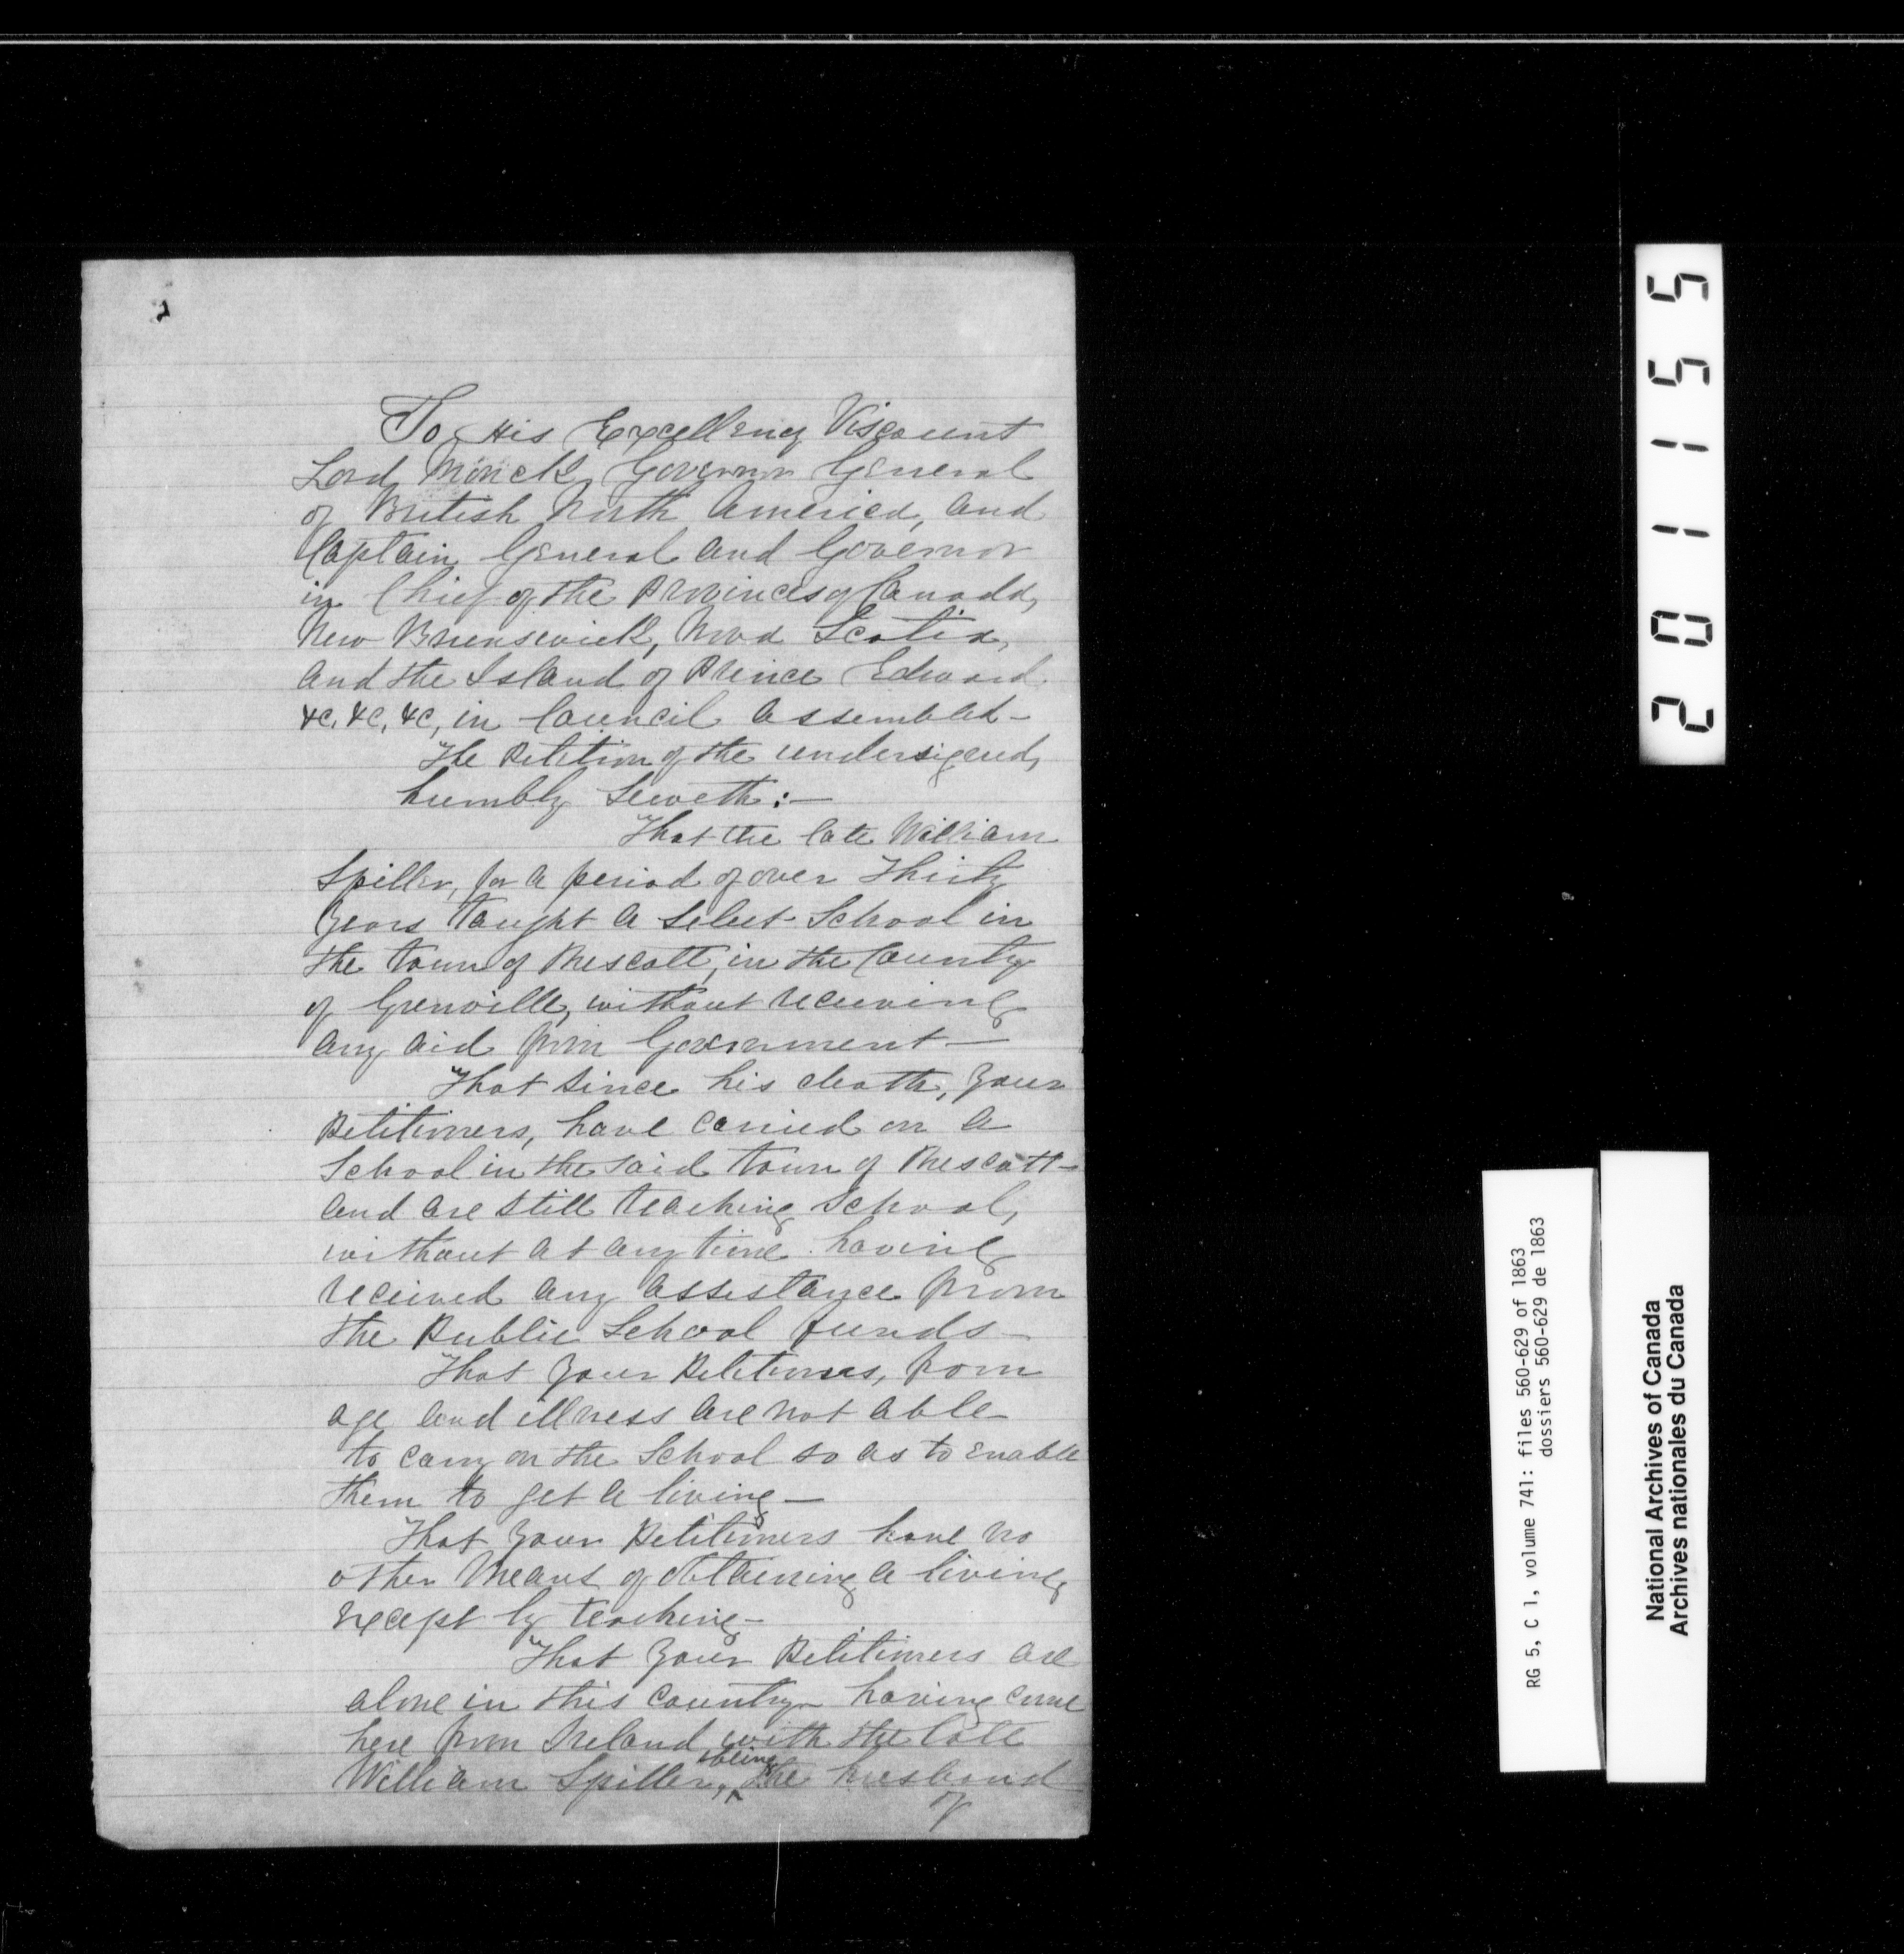 To His Excellency Viscount
Lord Monck, Governor General
of British North America, and
Captain General and Governor
in Chief of the Provinces of Canada,
New Brunswick, Nova Scotia,
and the Island of Prince Edward
&c, &c, &c, in Council assembled—
The Petition of the undersigned,
humbly Seweth:—
That the late William
Spiller, for a period of over Thirty
years taught a select School in
the town of Prescott, in the County
of Grenville, without receiving
any aid from Government—
That since his death, your
Petitioners, have carried on a
School in the said town of Prescott—
and are still teaching School,
without at any time having
received any assistance from
the Public School funds—
That your Petitioners, from
age and illness are not able
to carry on the School so as to enable
them to get a living—
That your Petitioners have no
other means of obtaining a living
except by teaching—
That your Petitioners are
alone in this country— having come
here from Ireland with the late
William Spiller, being the husband
of
201155
RG 5, C 1, volume 741: files 560-629 of 1863
dossiers 560-629 de 1863
National Archives of Canada
Archives nationales du Canada